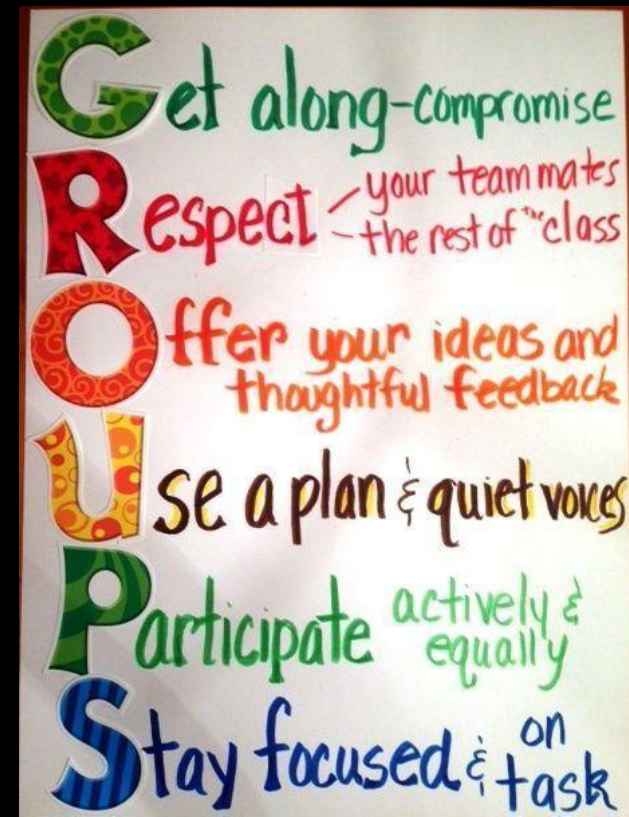 Get along-compromise
Respect - your teammates
- the rest of the class
Offer your ideas and
thoughtful feedback
Use a plan & quiet voices
Participate actively &
equally
Stay focused & on
task